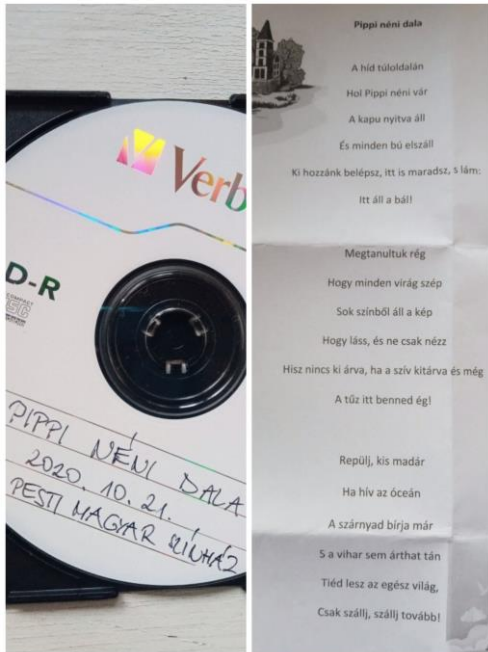 Verb
D-R
COMPACT
DISC
PIPPI NÉNI DALA
2020. 10. 21.
PESTI MAGYAR SZÍNHÁZ
Pippi néni dala
A híd túloldalán
Hol Pippi néni vár
A kapu nyitva áll
És minden bú elszáll
Ki hozzánk belépsz, itt is maradsz, s lám:
Itt áll a bál!
Megtanultuk rég
Hogy minden virág szép
Sok színből áll a kép
Hogy láss, és ne csak nézz
Hisz nincs ki árva, ha a szív kitárva és még
A tűz itt benned ég!
Repülj, kis madár
Ha hív az óceán
A szárnyad bírja már
S a vihar sem árthat tán
Tiéd lesz az egész világ,
Csak szállj, szállj tovább!